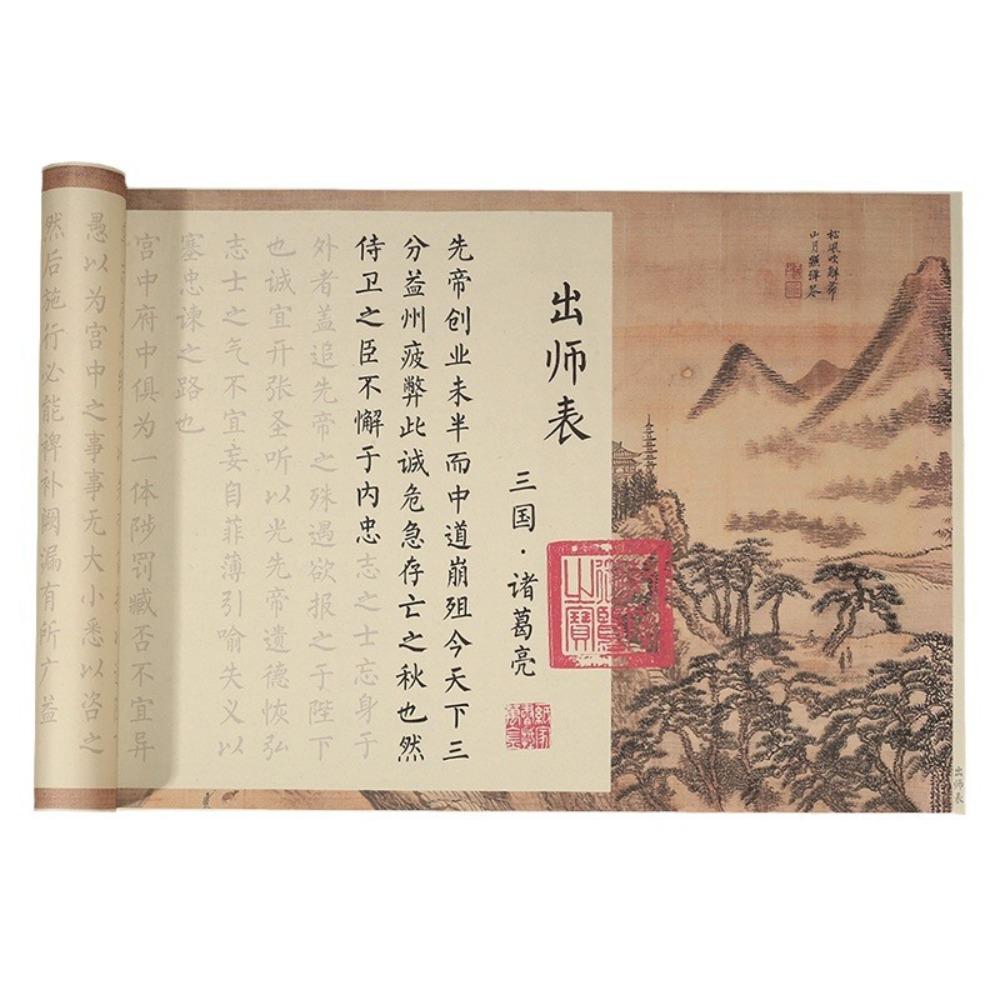 出师表
松風吹解帶
山月照彈琴
出师表
三国·诸葛亮
先帝创业未半而中道崩殂今天下三
分益州疲弊此诚危急存亡之秋也然
侍卫之臣不懈于内忠志之士忘身于
外者盖追先帝之殊遇欲报之于陛下
也诚宜开张圣听以光先帝遗德恢弘
志士之气不宜妄自菲薄引喻失义以
塞忠谏之路也
宫中府中俱为一体陟罚臧否不宜异
愚以为宫中之事事无大小悉以咨之
然后施行必能裨补阙漏有所广益